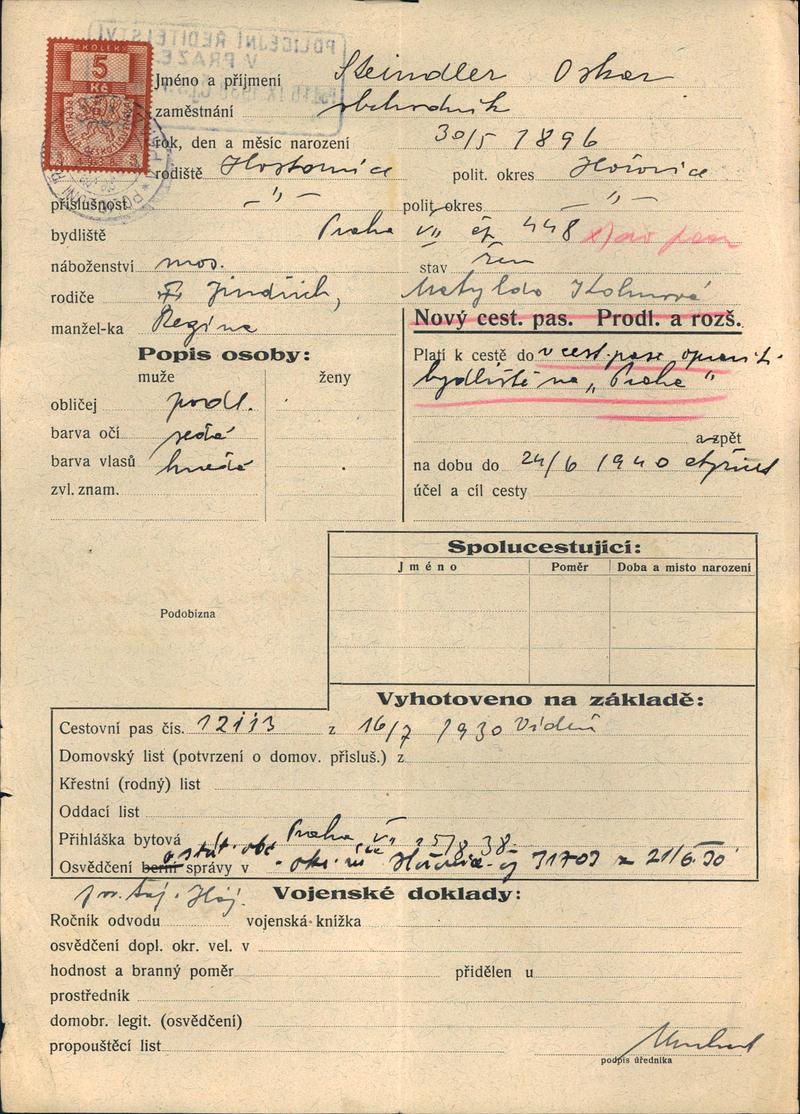 KOLEK
5
Kč
1938
POLICEJNÍ ŘEDITELSTVÍ
V PRAZE
Jméno a příjmení Steindler Oskar
zaměstnání obchodník
rok, den a měsíc narození 30/5 1896
rodiště Hostomice polit. okres Hořovice
příslušnost — " — polit. okres — " —
bydliště Praha VII čp 448
náboženství mos. stav žen
rodiče Jindřich, Matylda Kohnová
manžel-ka Regina
Nový cest. pas. Prodl. a rozš.
Popis osoby:
Platí k cestě do v cest. pase opraviti
muže ženy
bydliště na „Praha"
obličej podl.
barva očí šedé
a zpět
barva vlasů hnědé
na dobu do 24/6 1940
zvl. znam.
účel a cíl cesty
Spolucestující:
Jméno Poměr Doba a místo narození
Podobizna
Vyhotoveno na základě:
Cestovní pas čís. 12113 z 16/7 1930 Vídeň
Domovský list (potvrzení o domov. přísluš.) z
Křestní (rodný) list
Oddací list
Přihláška bytová Praha 15/8 38
Osvědčení berní správy v o stát. obč. okr. úř. Hořovice čj 31703 z 21/6 30
Vojenské doklady:
Ročník odvodu vojenská knížka
osvědčení dopl. okr. vel. v
hodnost a branný poměr přidělen u
prostředník
domobr. legit. (osvědčení)
propouštěcí list
podpis úředníka